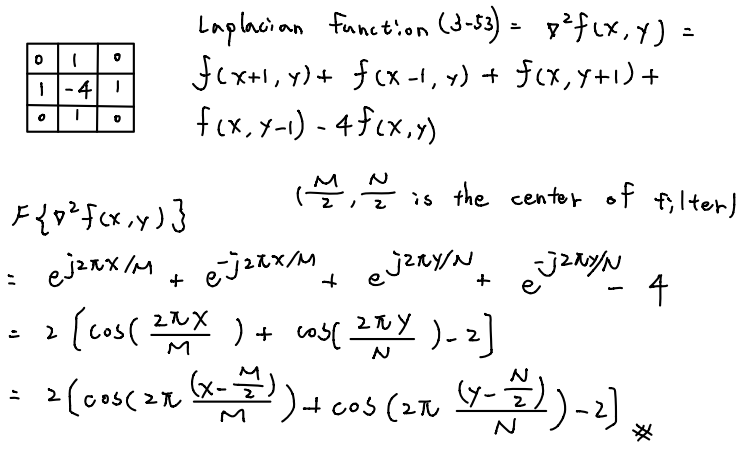 Laplacian Function (3-53) = ∇²f(x, y) =
f(x+1, y) + f(x-1, y) + f(x, y+1) +
f(x, y-1) - 4f(x, y)
0 1 0
1 -4 1
0 1 0
(M/2, N/2 is the center of filter)
F{∇²f(x, y)}
= e^{j2πx/M} + e^{-j2πx/M} + e^{j2πy/N} + e^{-j2πy/N} - 4
= 2[cos(2πx/M) + cos(2πy/N) - 2]
= 2[cos(2π (x - M/2)/M) + cos(2π (y - N/2)/N) - 2] ※